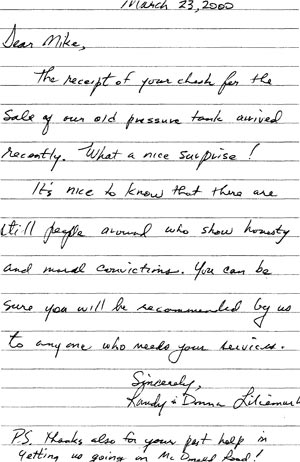 March 23, 2000
Dear Mike,
The receipt of your check for the
sale of our old pressure tank arrived
recently. What a nice surprise!
It's nice to know that there are
still people around who show honesty
and moral convictions. You can be
sure you will be recommended by us
to anyone who needs your services.
Sincerely,
Randy & Donna
P.S. Thanks also for your past help in
getting us going on McDonald Road!